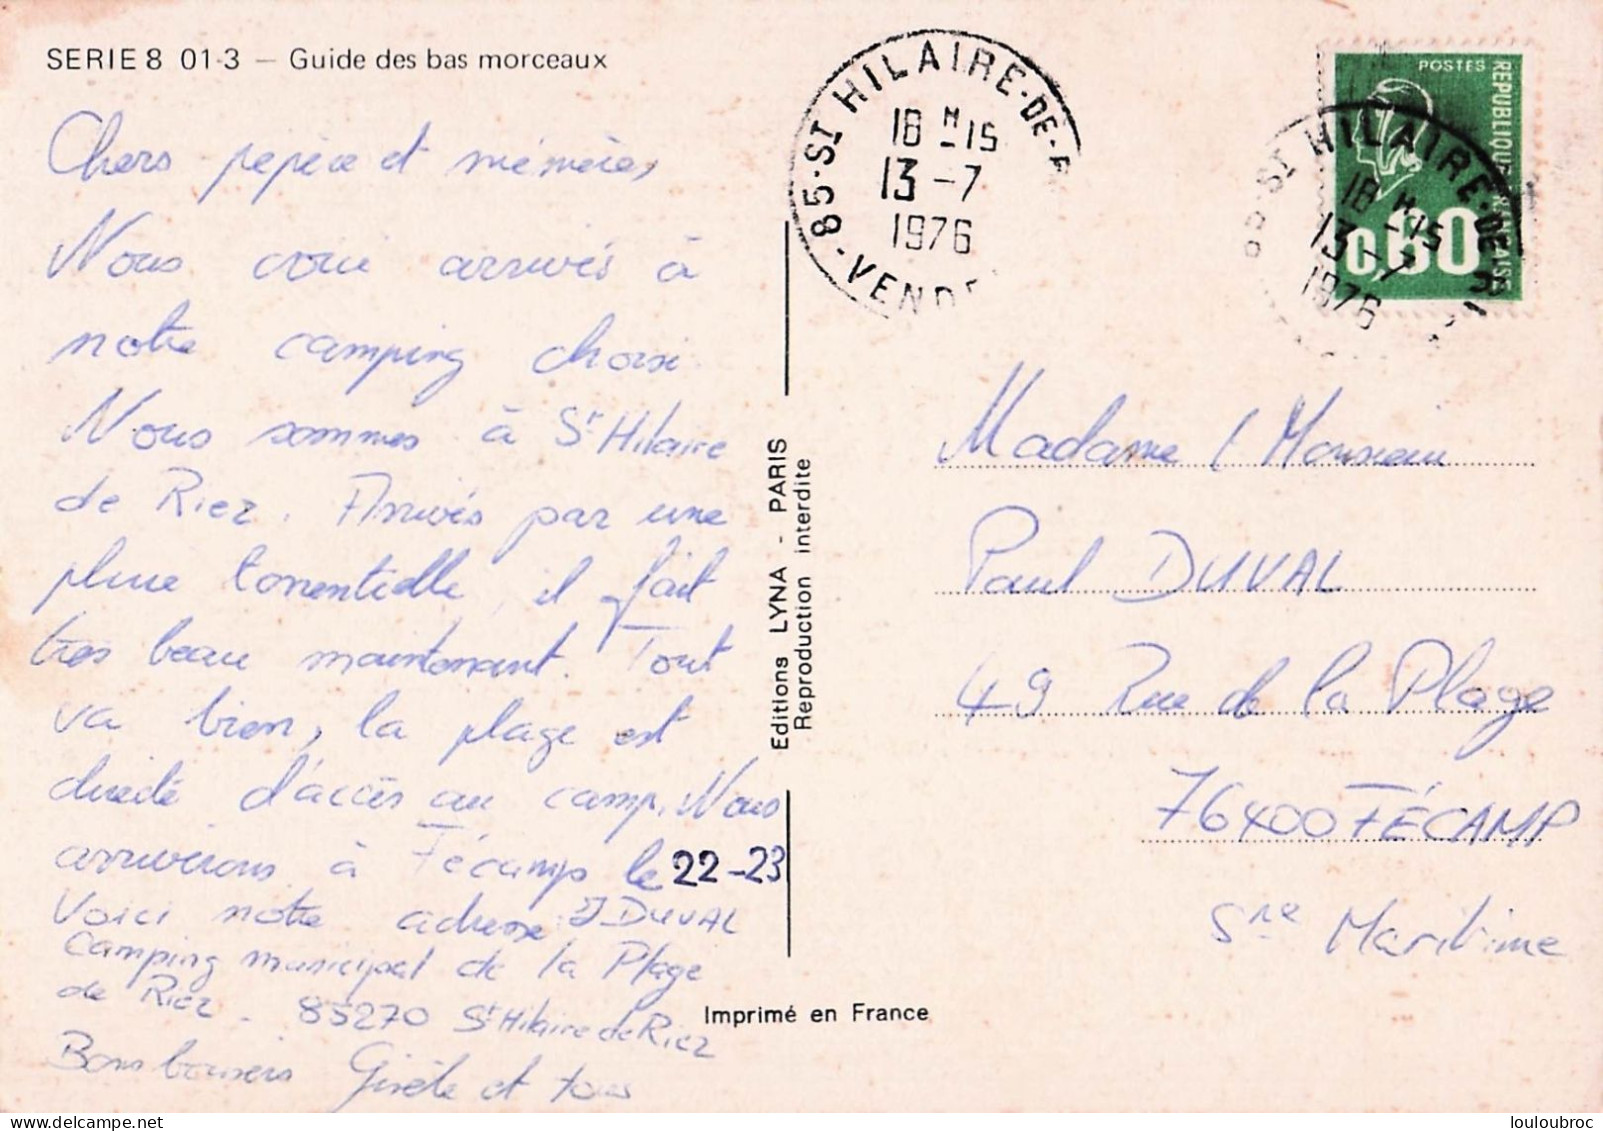 SERIE 8 01-3 — Guide des bas morceaux
Chers pépère et mémères
Nous voici arrivés à
notre camping choisi.
Nous sommes à St Hilaire
de Riez. Arrivés par une
pluie torrentielle, il fait
très beau maintenant. Tout
va bien, la plage est
directe d'accès au camp. Nous
arriverons à Fécamp le 22-23
Voici notre adresse J DUVAL
Camping municipal de la Plage
de Riez - 85270 St Hilaire de Riez
Bons baisers Gisèle et tous
Editions LYNA - PARIS
Reproduction interdite
Imprimé en France
85-ST HILAIRE-DE-R
18 H 15
13 -7
1976
-VENDE
POSTES
REPUBLIQUE FRANÇAISE
0,60
ST HILAIRE-DE-R
18 H 15
13 -7
1976
Madame / Monsieur
Paul DUVAL
49 Rue de la Plage
76400 FÉCAMP
Sne Maritime
louloubroc